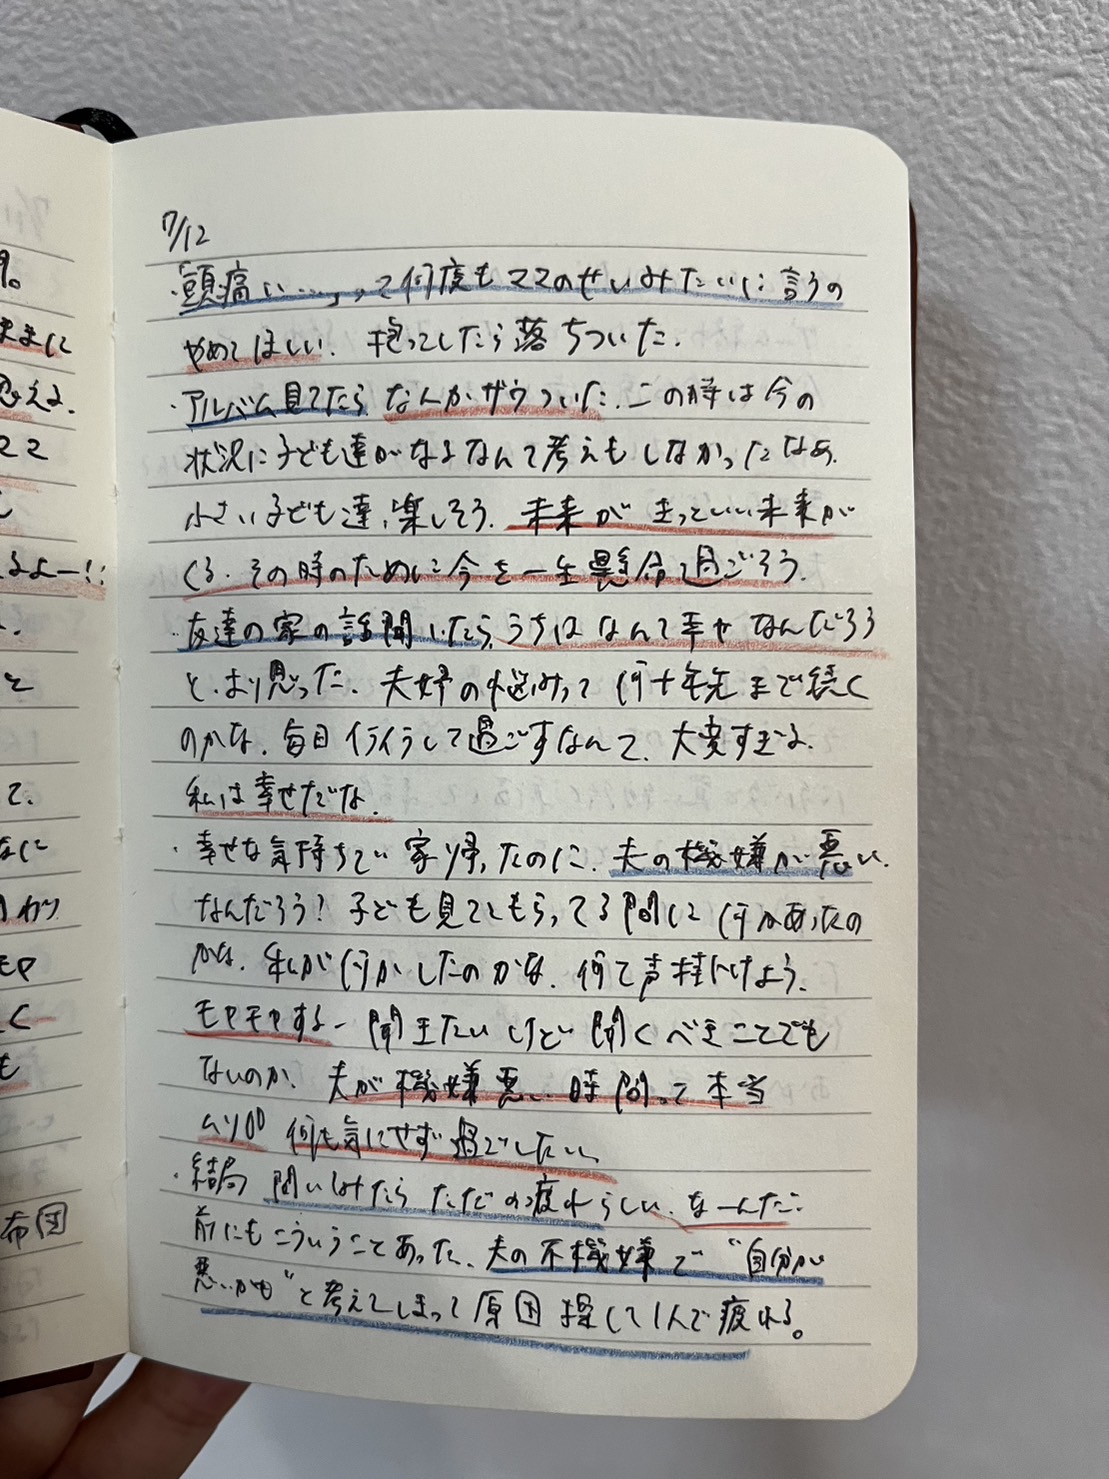 7/12
・「頭痛い…」って何度もママのせいみたいに言うの
やめてほしい。抱っこしたら落ちついた。
・アルバム見てたら なんかザワついた。この時は今の
状況に子ども達がなるなんて考えもしなかったなあ。
小さい子ども達、楽しそう。未来がきっといい未来が
くる。その時のために今を一生懸命過ごそう。
・友達の家の話聞いたら、うちはなんて幸せなんだろう
と、より思った。夫婦の悩みって何十年先まで続く
のかな。毎日イライラして過ごすなんて、大変すぎる。
私は幸せだな。
・幸せな気持ちで家帰ったのに、夫の機嫌が悪い。
なんだろう?子ども見てもらってる間に何かあったの
かな。私が何かしたのかな。何て声掛けよう。
モヤモヤする。聞きたいけど聞くべきことでも
ないのか。夫が機嫌悪い時間って本当
ムリ 何も気にせず過ごしたい。
・結局 聞いてみたらただの疲れらしい。なーんだ。
前にもこういうことあった。夫の不機嫌で"自分が
悪いかも"と考えてしまって原因探して1人で疲れる。
9。
ままに
思える。
ママ
し
るよー!!
と
て。
なに
わり
モヤ
く
も
布団